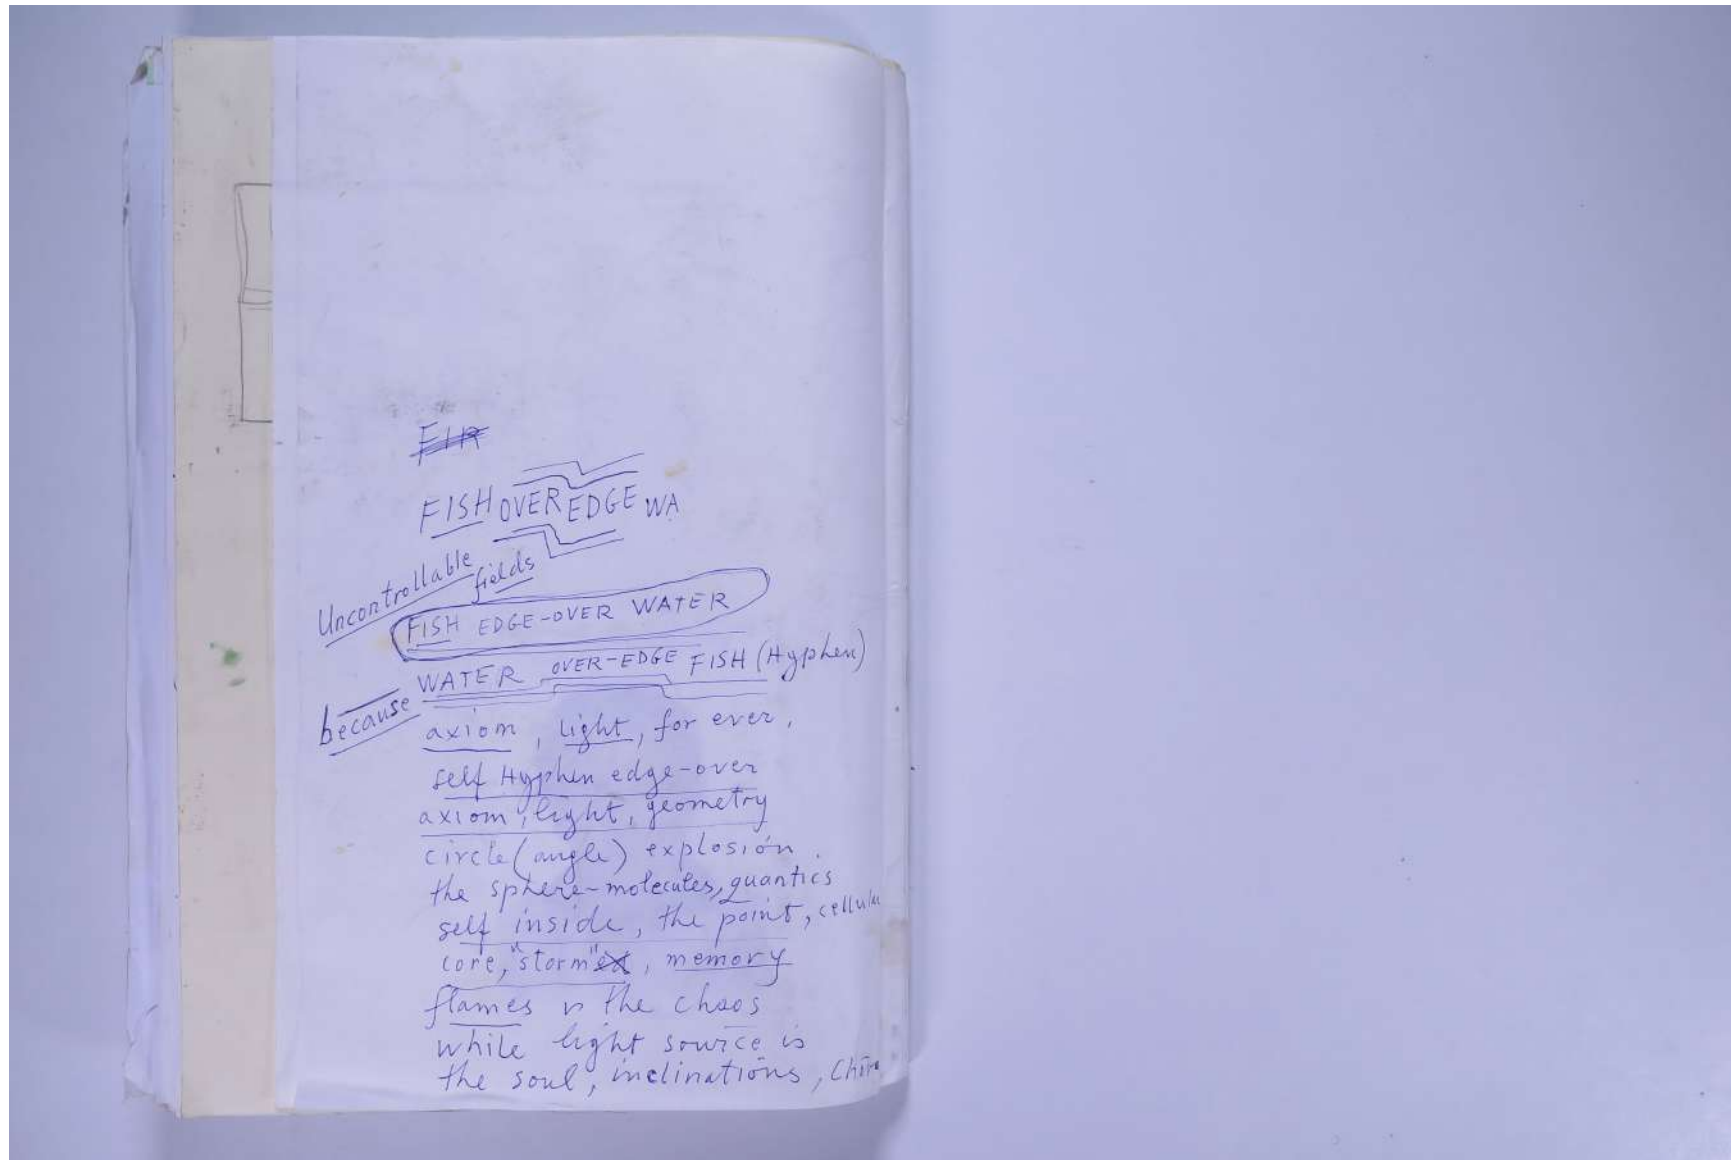 FISH OVER EDGE WA
Uncontrollable
fields
FISH EDGE-OVER WATER
WATER OVER-EDGE FISH (Hyphen)
because
axiom, light, for ever,
self Hyphen edge-over
axiom, light, geometry
circle (angle) explosion.
the sphere-molecules, quantics
self inside, the point, cellular
core, "storm", memory
flames is the chaos
while light source is
the soul, inclinations,